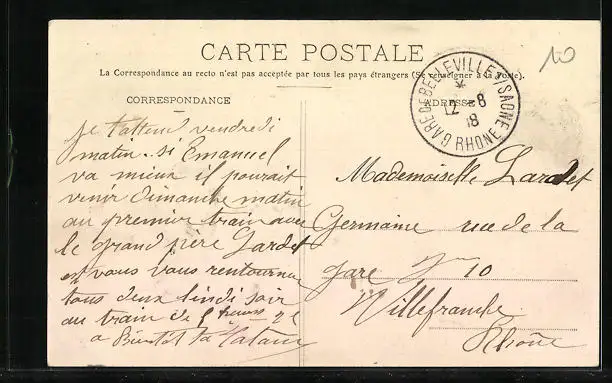 10
CARTE POSTALE
La Correspondance au recto n'est pas acceptée par tous les pays étrangers (Se renseigner à la Poste).
CORRESPONDANCE
ADRESSE
GARE DE BELLEVILLE S/SAONE
12 - 8
8
RHONE
je t'attend vendredi
matin. si Emanuel
va mieux il pourait
venir Dimanche matin
au premier train avec
le grand père Lardet
et vous vous rentourner
tous deux lindi soir
au train de
a Bientôt ta
Mademoiselle Lardet
Germaine rue de la
gare No 10
Villefranche
Rhône